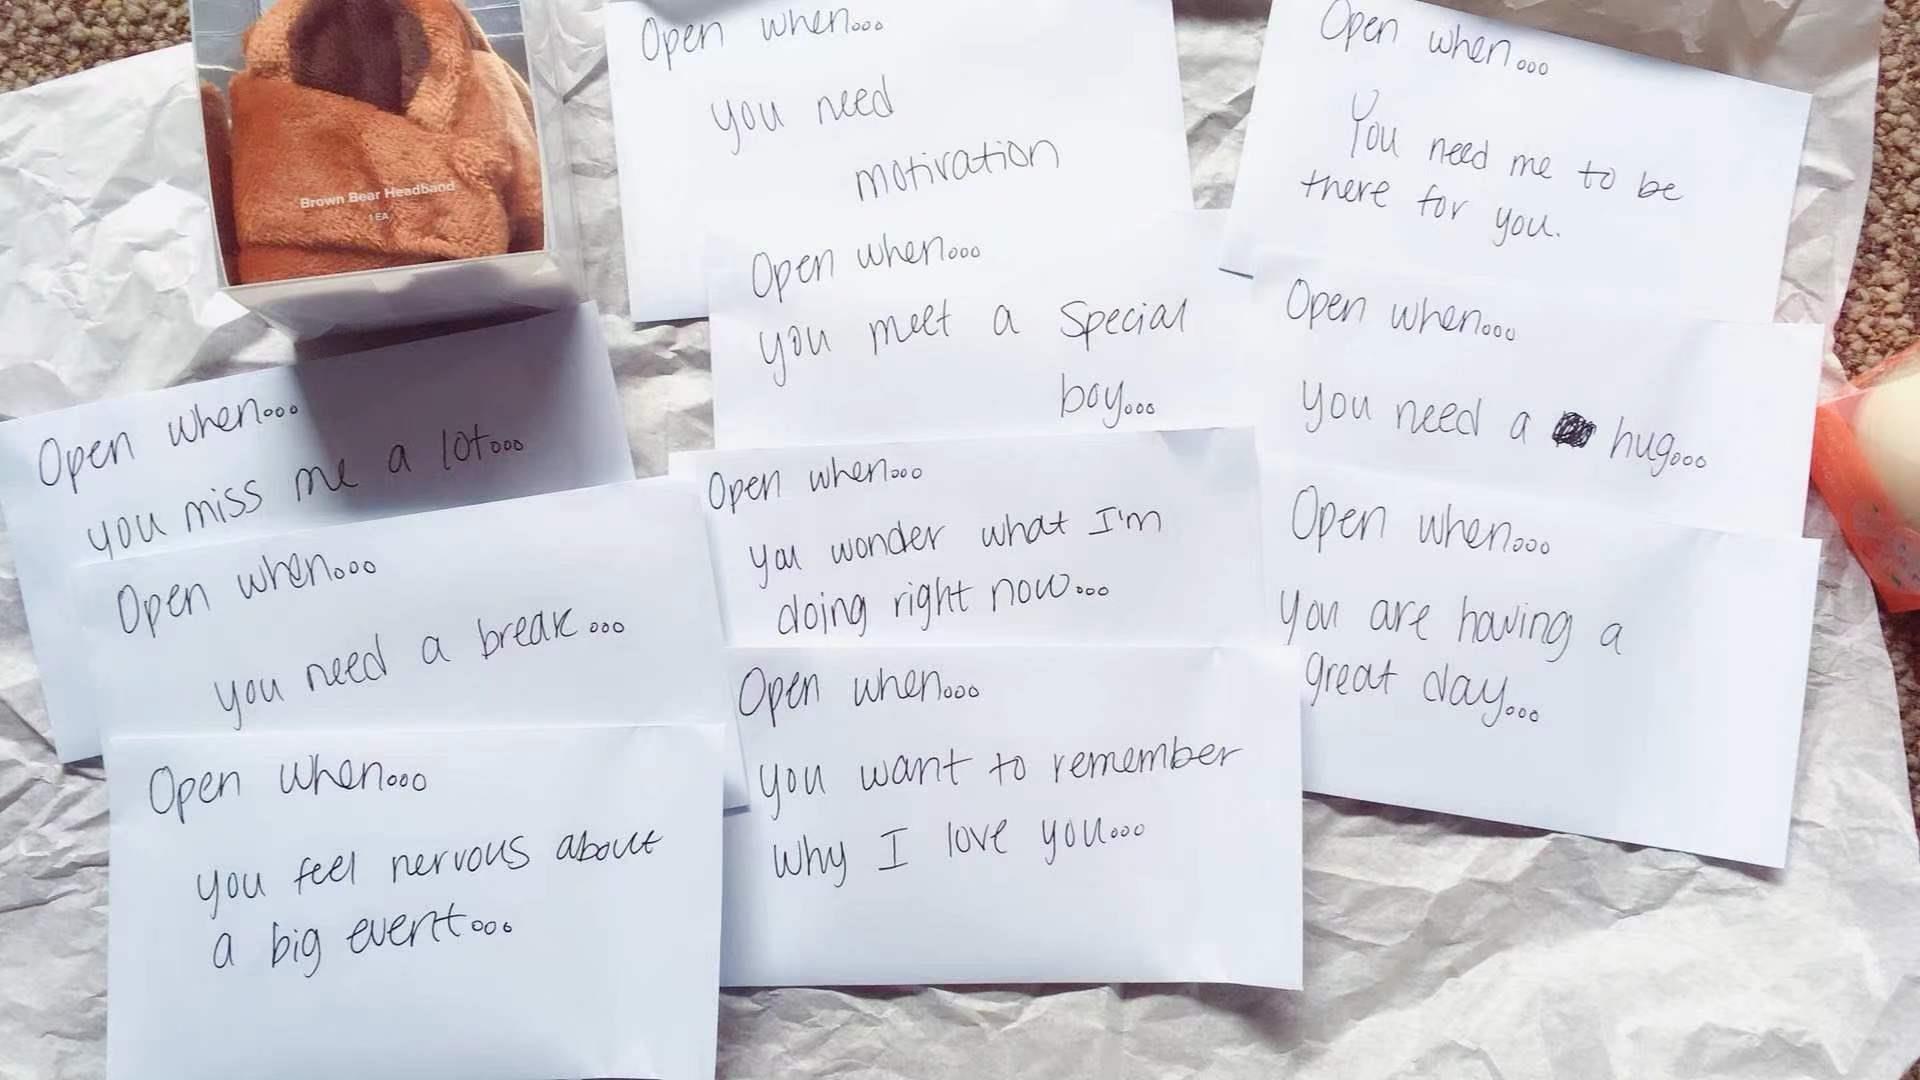 Brown Bear Headband
1 EA
Open when...
you miss me a lot...
Open when...
you need a break...
Open when...
you feel nervous about
a big event...
Open when...
you need
motivation
Open when...
you meet a special
boy...
Open when...
you wonder what I'm
doing right now...
Open when...
you want to remember
why I love you...
Open when...
You need me to be
there for you.
Open when...
you need a hug...
Open when...
you are having a
great day...